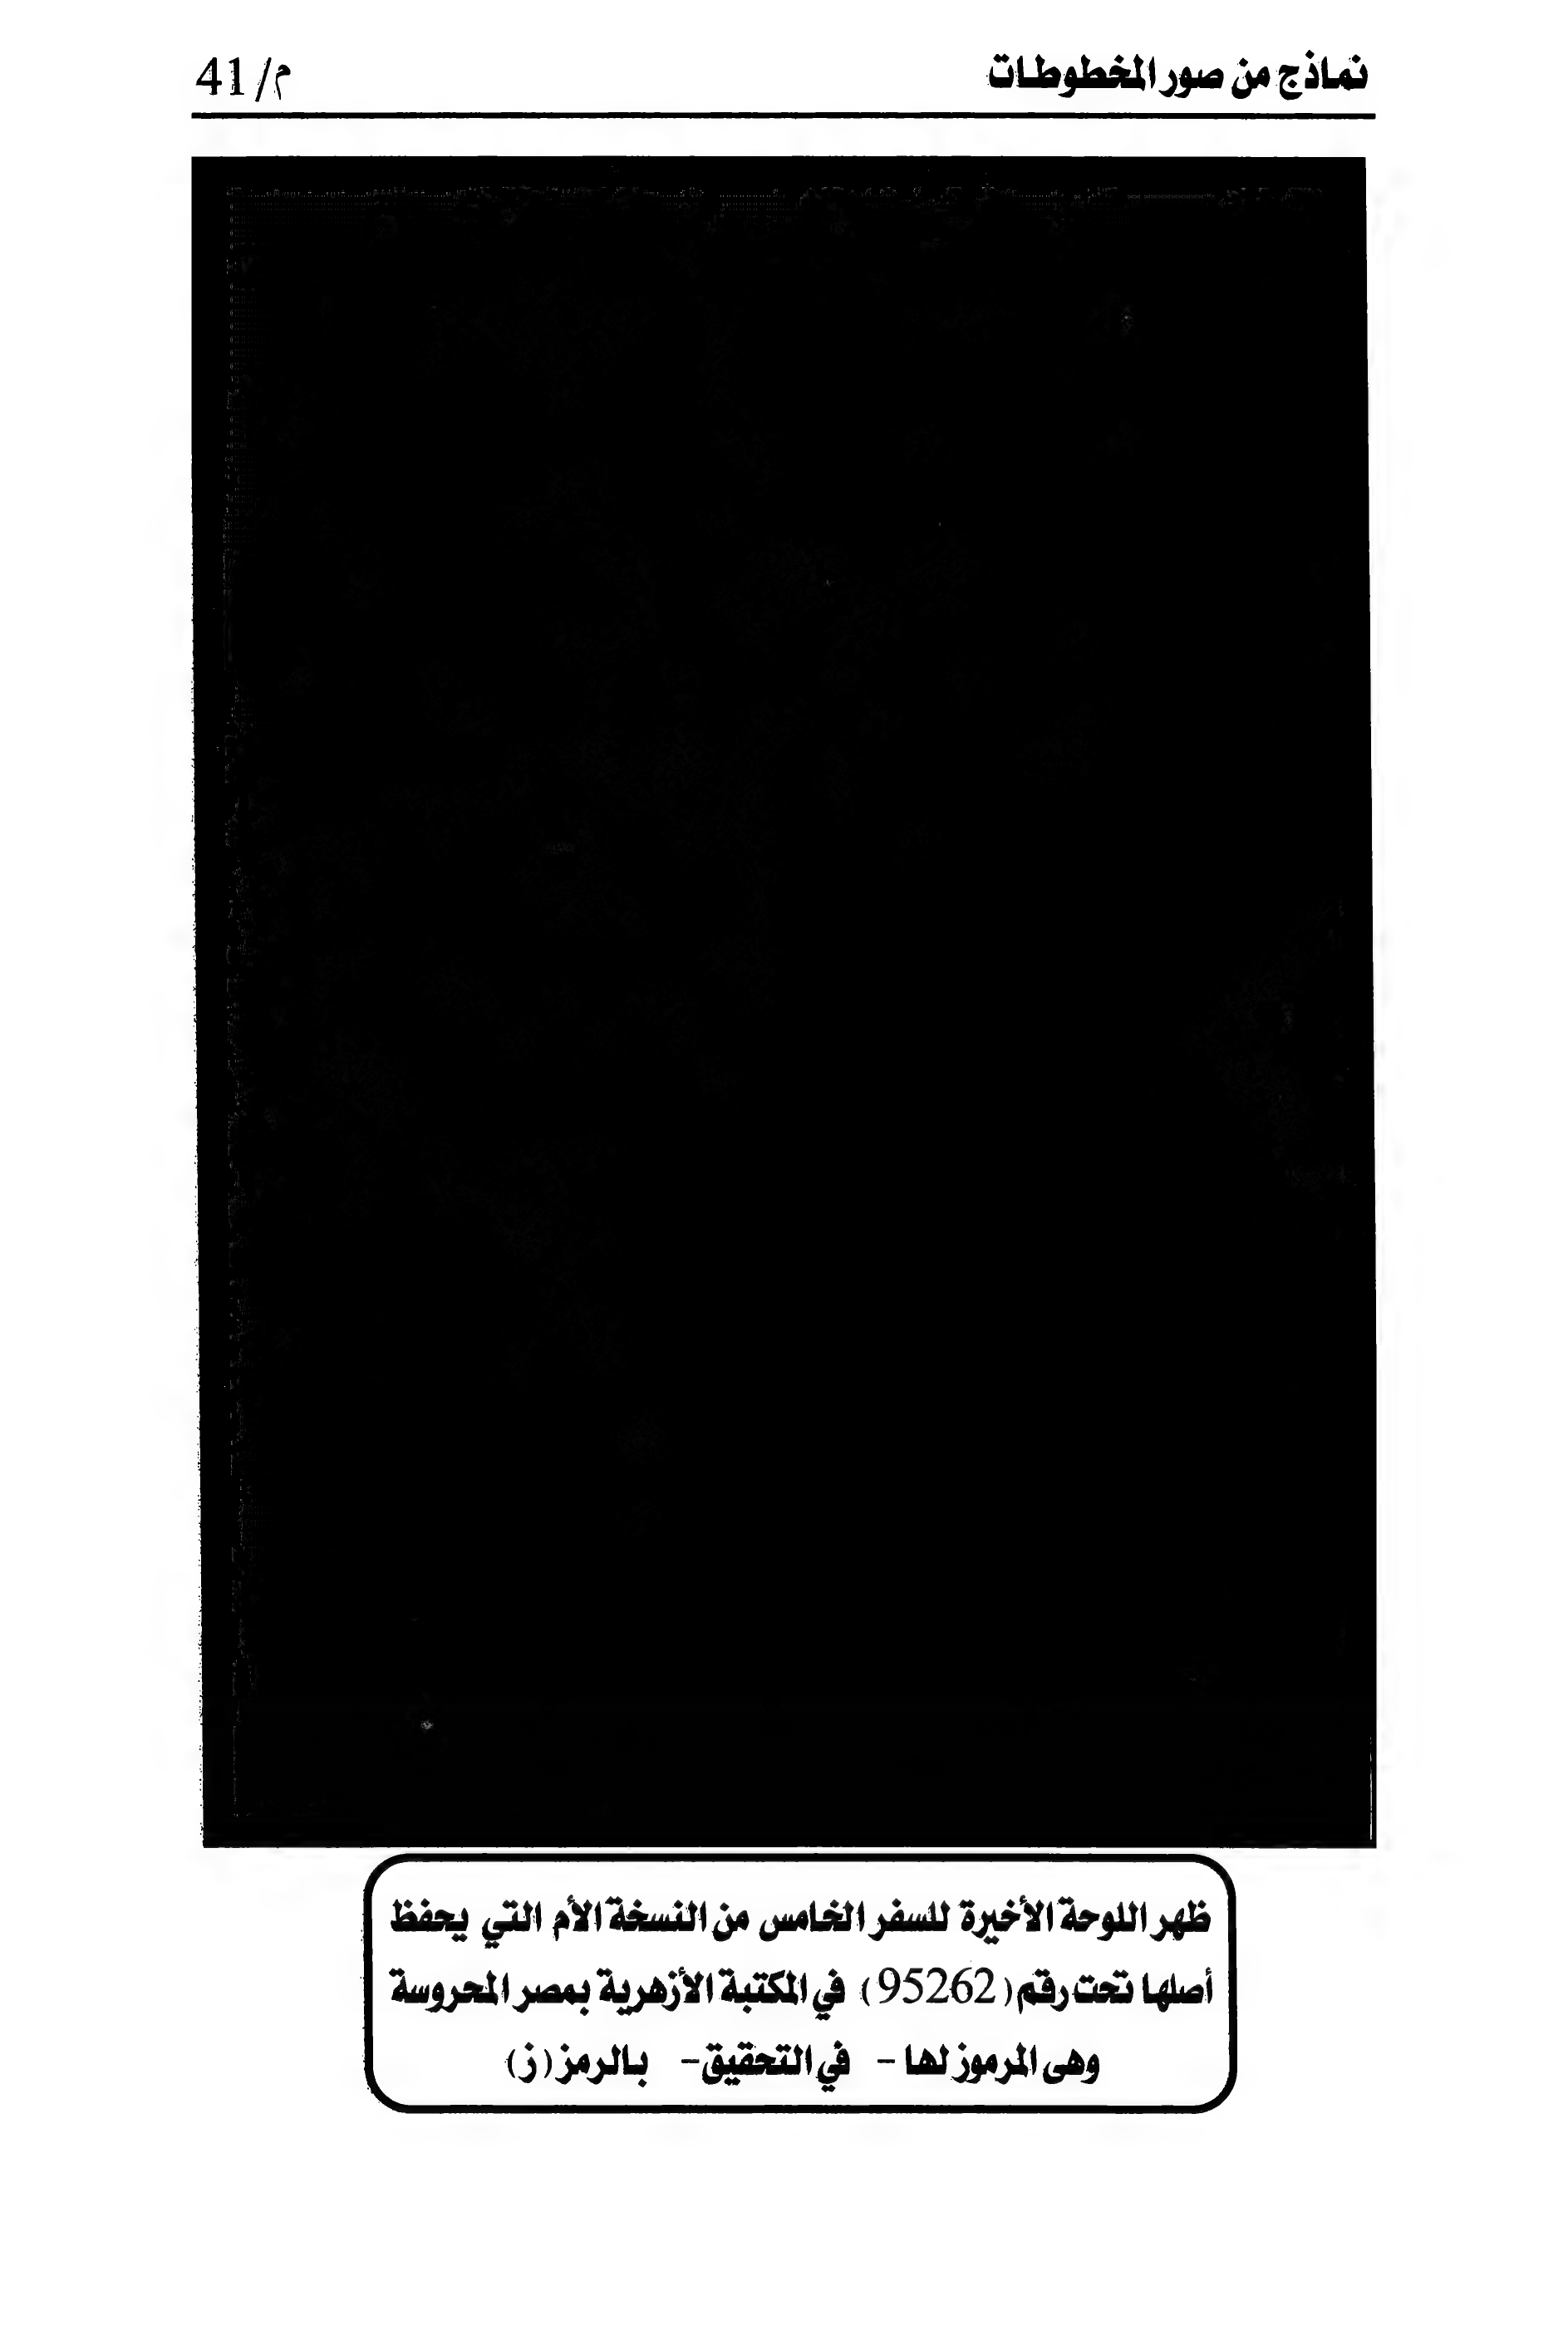 نماذج من صور المخطوطات
م/41
ظهر اللوحة الأخيرة للسفر الخامس من النسخة الأم التي يحفظ
أصلها تحت رقم (95262) في المكتبة الأزهرية بمصر المحروسة
وهى المرموز لها - في التحقيق - بالرمز (ز)